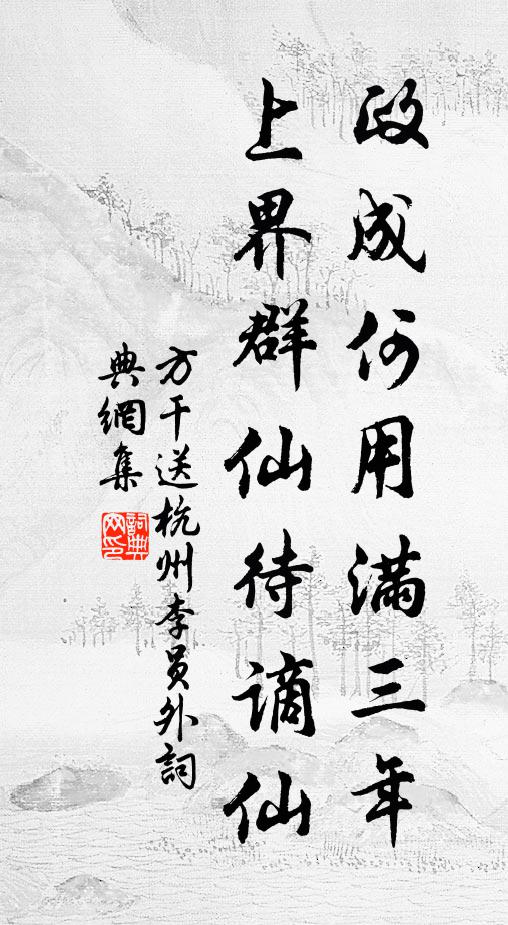 政成何用满三年
上界群仙待谪仙
方干送杭州李员外詞
典網集
詞典网印